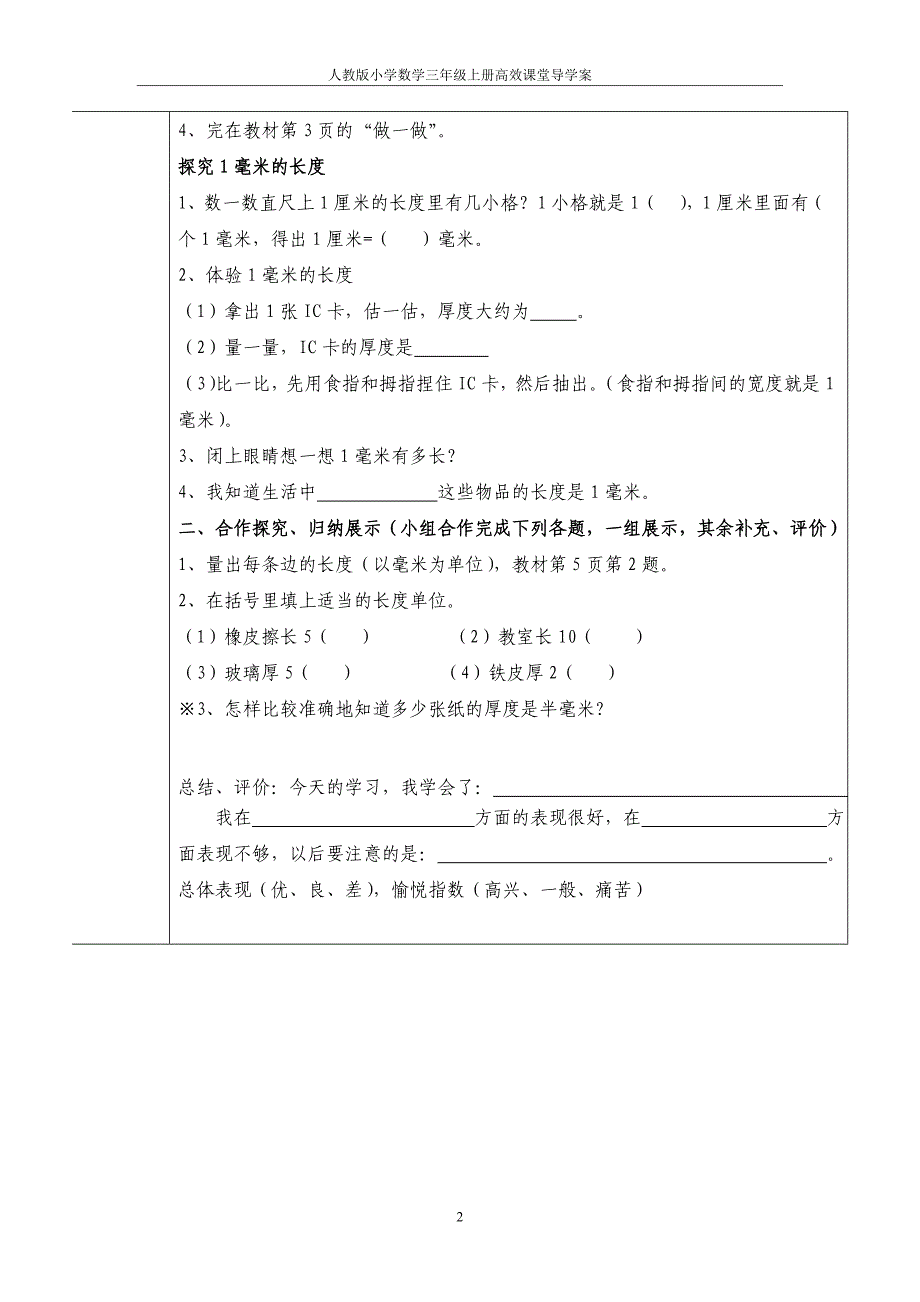 人教版小学数学三年级上册高效课堂导学案
4、完在教材第 3 页的 “做一做”。
探究 1 毫米的长度
1、数一数直尺上 1 厘米的长度里有几小格？1 小格就是 1（   ），1 厘米里面有（
个 1 毫米，得出 1 厘米=（    ）毫米。
2、体验 1 毫米的长度
（1）拿出 1 张 IC 卡，估一估，厚度大约为_____。
（2）量一量，IC 卡的厚度是________
（3）比一比，先用食指和拇指捏住 IC 卡，然后抽出。（食指和拇指间的宽度就是 1
毫米）。
3、闭上眼睛想一想 1 毫米有多长？
4、我知道生活中_____________这些物品的长度是 1 毫米。
二、合作探究、归纳展示（小组合作完成下列各题，一组展示，其余补充、评价）
1、量出每条边的长度（以毫米为单位），教材第 5 页第 2 题。
2、在括号里填上适当的长度单位。
（1）橡皮擦长 5（    ）          （2）教室长 10（     ）
（3）玻璃厚 5（    ）          （4）铁皮厚 2（    ）
※3、怎样比较准确地知道多少张纸的厚度是半毫米？
总结、评价：今天的学习，我学会了：______________________________________
我在________________________方面的表现很好，在____________________方
面表现不够，以后要注意的是：__________________________________________。
总体表现（优、良、差），愉悦指数（高兴、一般、痛苦）
2